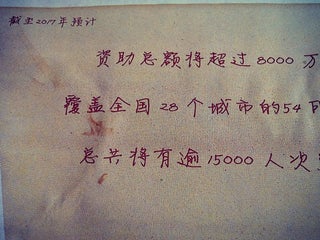 截至2017年预计
资助总额将超过8000万
覆盖全国28个城市的54
总共将有逾15000人次